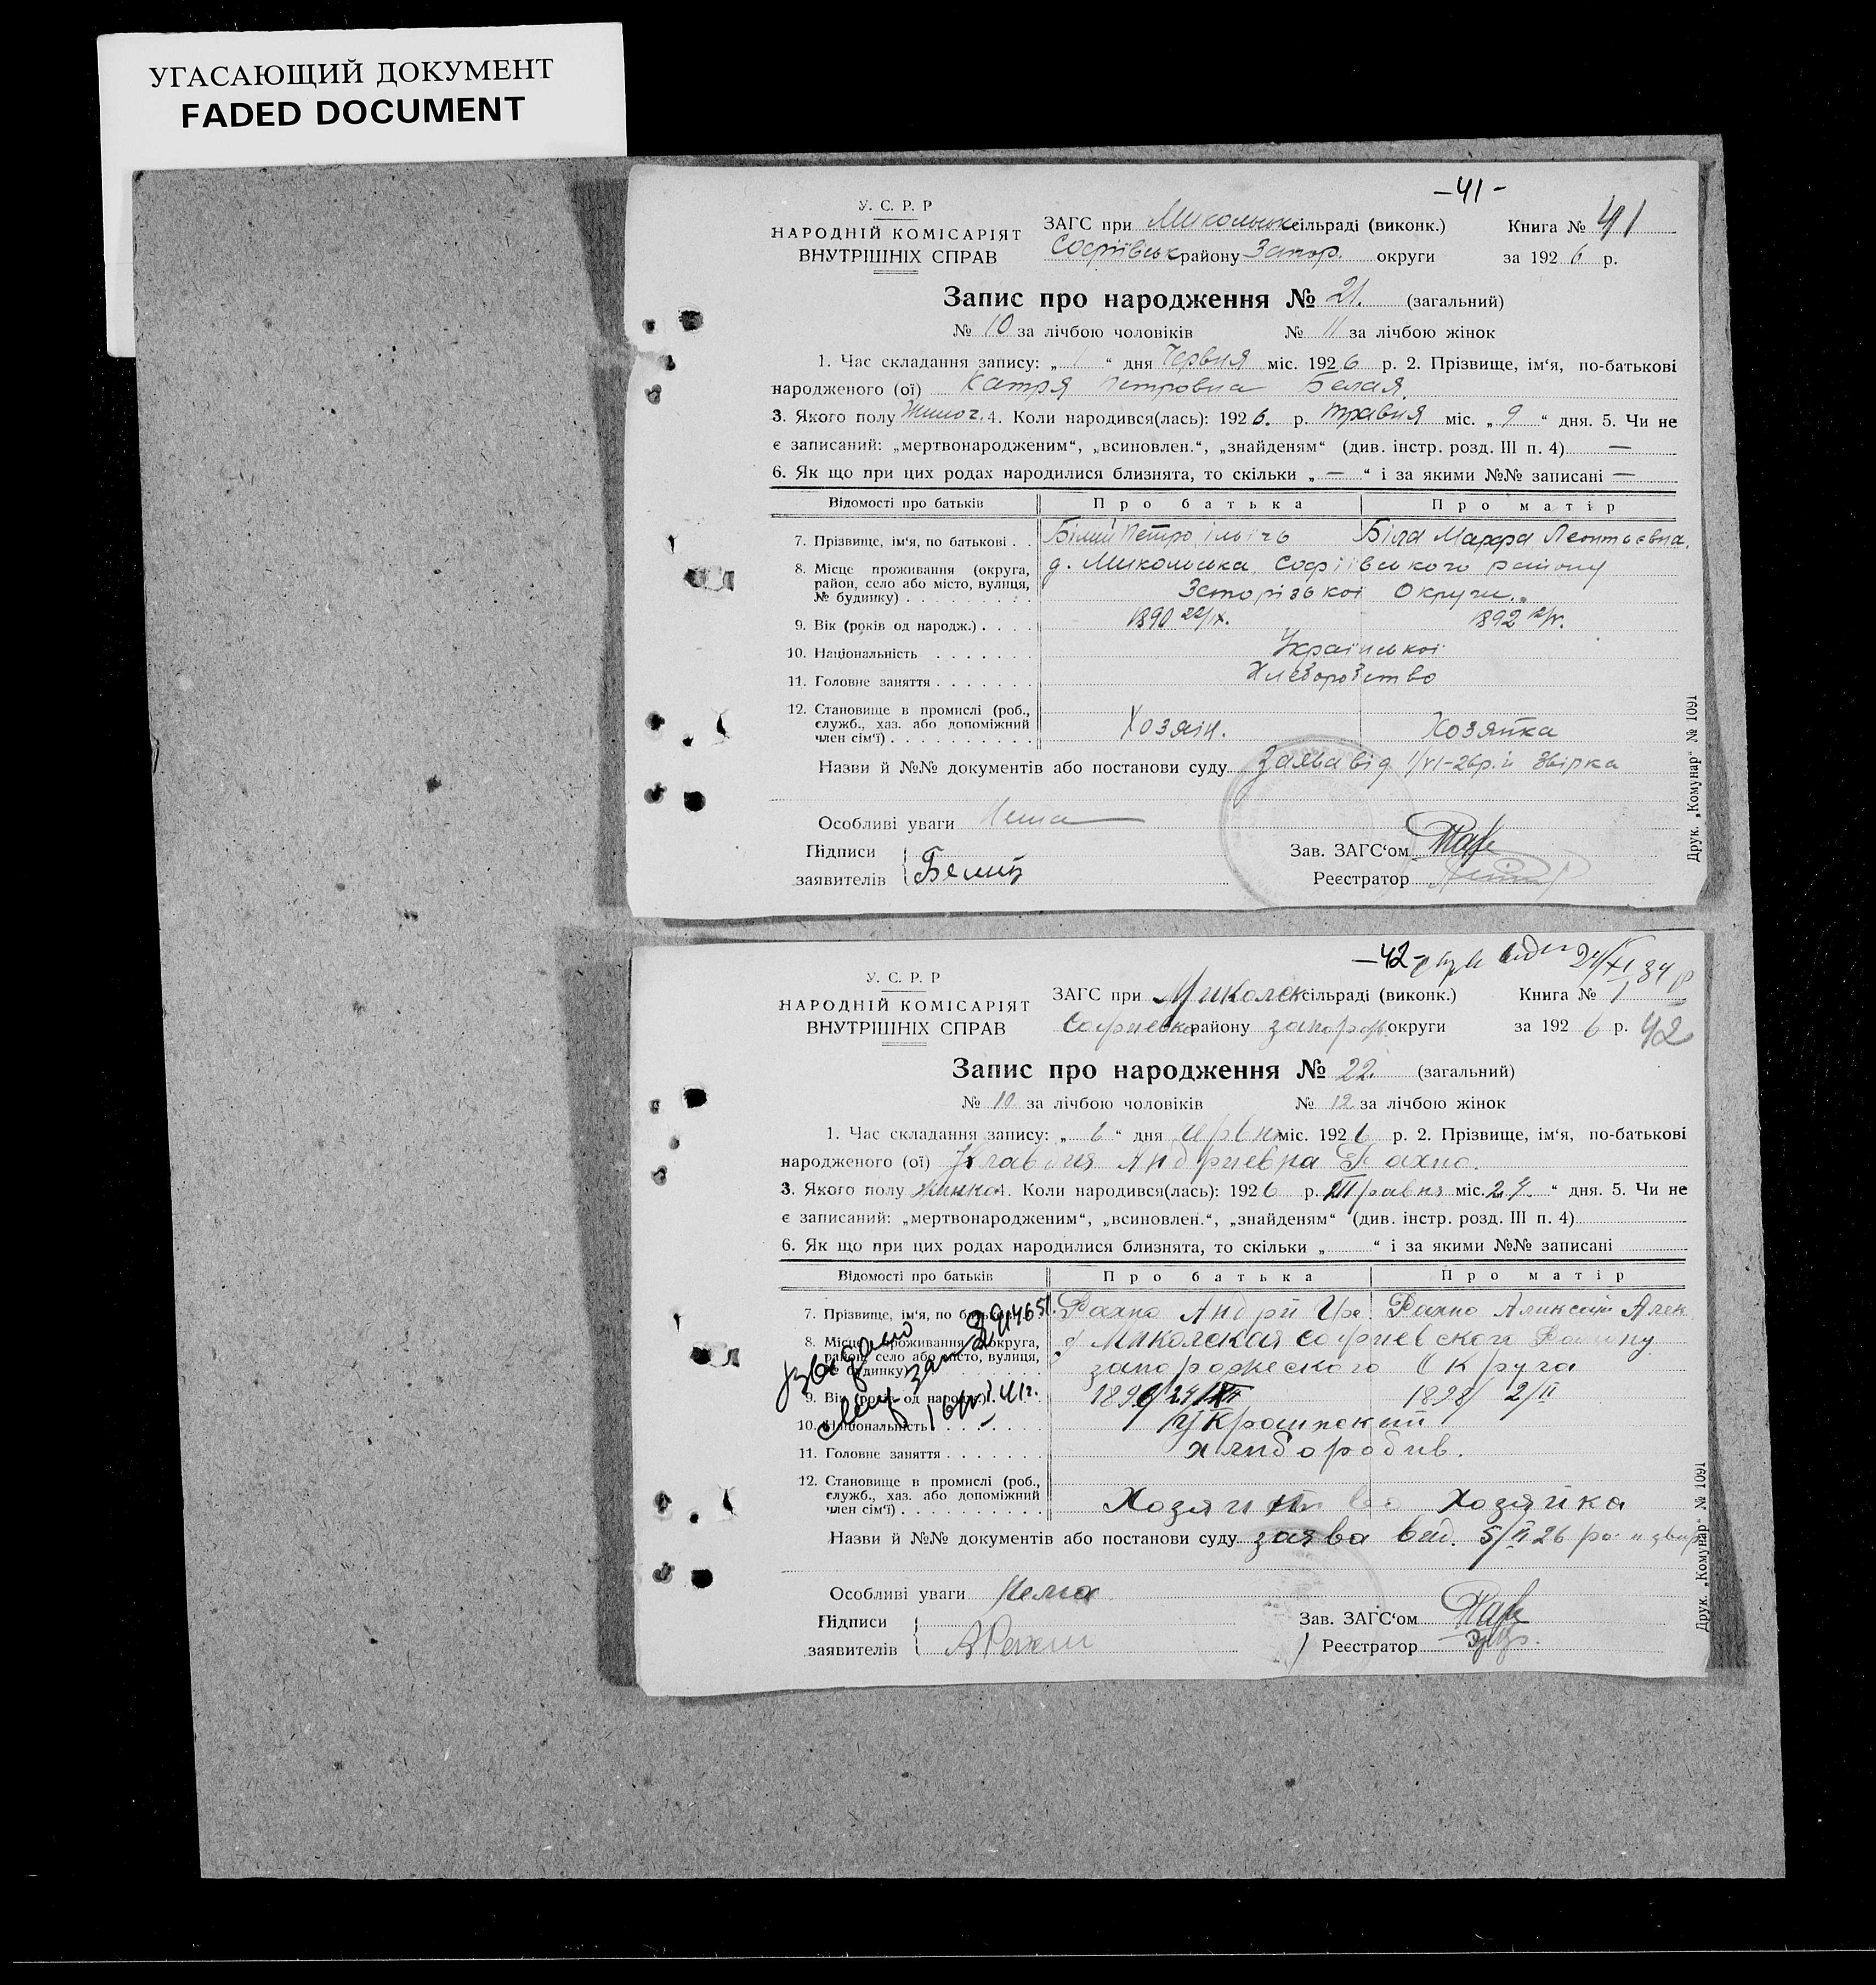 УГАСАЮЩИЙ ДОКУМЕНТ
FADED DOCUMENT
–41–
У. С. Р. Р
НАРОДНІЙ КОМІСАРІЯТ
ВНУТРІШНІХ СПРАВ
ЗАГС при Микольськ сільраді (виконк.) Книга № 41
Софіївськ району Запор. округи за 192 6 р.
Запис про народження № 21. (загальний)
№ 10 за лічбою чоловіків № 11 за лічбою жінок
1. Час складання запису: „ 1 “ дня Червня міс. 1926 р. 2. Прізвище, ім‘я, по-батькові
народженого (ої) Катря Петровна Белая.
3. Якого полу Жиноч. 4. Коли народився(лась): 192 6. р. травня міс. „ 9 “ дня. 5. Чи не
є записаний: „мертвонародженим“, „всиновлен.“, „знайденям“ (див. інстр. розд. III п. 4) —
6. Як що при цих родах народилися близнята, то скільки „ — “ і за якими №№ записані —
Відомості про батьків Про батька Про матір
7. Прізвище, ім‘я, по батькові . . Білий Петро Ільічь Біла Марфа Леонтьевна.
8. Місце проживання (округа, район, село або місто, вулиця, № будинку) . . . . . . . . . д. Микольська, Софіївського району
Запорізькоі Округи.
9. Вік (років од народж.) . . . . 1890 22/IX. 1892
10. Національність . . . . . . . Українськоі
11. Головне заняття . . . . . . . Хлеборобство
12. Становище в промислі (роб., служб., хаз. або допоміжний член сім‘ї) . . . . . . . . . . Хозяін. Хозяйка
Назви й №№ документів або постанови суду Заява від 1/VI-26р. й Звірка
Особливі уваги Нема
Підписи
заявителів Белий
Зав. ЗАГС‘ом
Реєстратор
Друк. „Комунар“ № 1091
–42–
У. С. Р. Р
НАРОДНІЙ КОМІСАРІЯТ
ВНУТРІШНІХ СПРАВ
ЗАГС при Миколск сільраді (виконк.) Книга № 1
Софиевска району запорож. округи за 192 6 р. 42
Запис про народження № 22. (загальний)
№ 10 за лічбою чоловіків № 12 за лічбою жінок
1. Час складання запису: „ 6 “ дня червня міс. 192 6 р. 2. Прізвище, ім‘я, по-батькові
народженого (ої) Клавдия Андриевна Рахно.
3. Якого полу жинка 4. Коли народився(лась): 192 6 р. Травня міс. 24. “ дня. 5. Чи не
є записаний: „мертвонародженим“, „всиновлен.“, „знайденям“ (див. інстр. розд. III п. 4)
6. Як що при цих родах народилися близнята, то скільки „ “ і за якими №№ записані
Відомості про батьків Про батька Про матір
7. Прізвище, ім‘я, по батькові Рахно Андрій Рахно Алек
8. Місце проживання (округа, район, село або місто, вулиця, № будинку) д Миколская софиевского Району
запорожеского Округа
9. Вік (років од народж.) 1898/ 2/II
10. Національність . . . . Украинский
11. Головне заняття . . . . . . . хлиборобив.
12. Становище в промислі (роб., служб., хаз. або допоміжний член сім‘ї) . . . . . . . . . . Хозяин Хозяйка
Назви й №№ документів або постанови суду заява вид. 26 ро.
Особливі уваги Нема
Підписи
заявителів
Зав. ЗАГС‘ом
Реєстратор
Друк. „Комунар“ № 1091